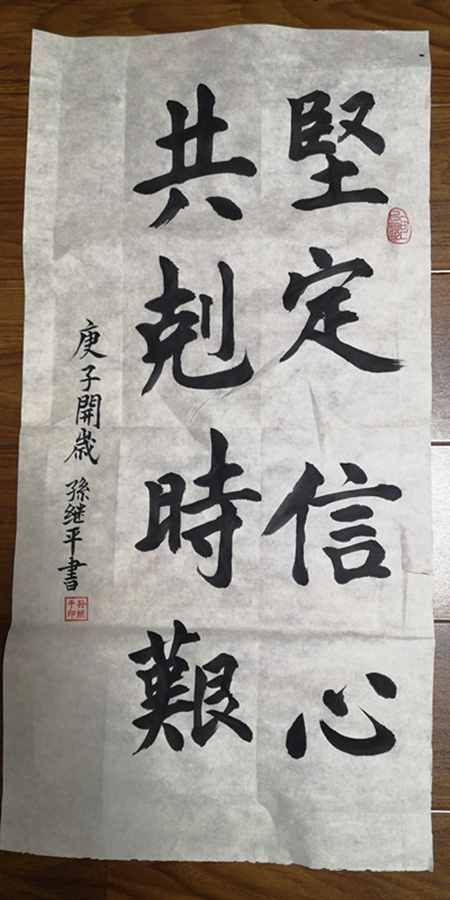 堅定信心
共剋時艱
庚子開歲 孫继平書